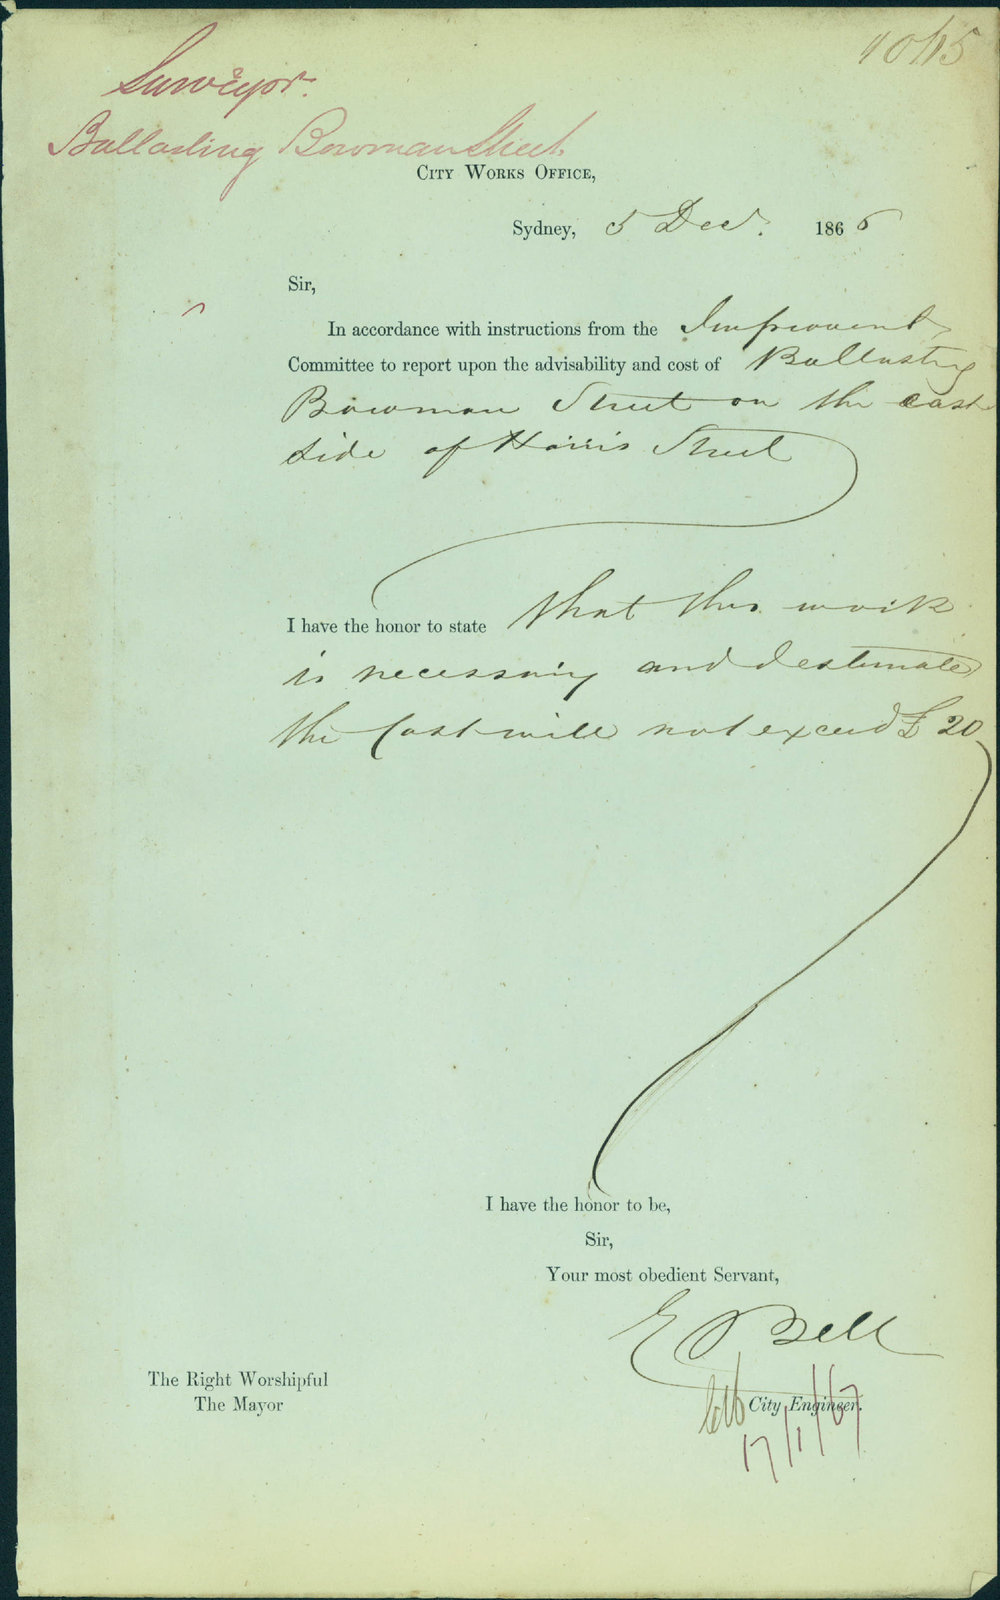 Surveyor.
Ballasting Bowman Street
CITY WORKS OFFICE,
Sydney, 5 Decr. 1866
Sir,
In accordance with instructions from the Improvement
Committee to report upon the advisability and cost of Ballasting
Bowman Street on the east
side of Harris Street
I have the honor to state that this work
is necessary and I estimate
the Cost will not exceed £20
I have the honor to be,
Sir,
Your most obedient Servant,
E Bell
The Right Worshipful
The Mayor
City Engineer.
17/1/67